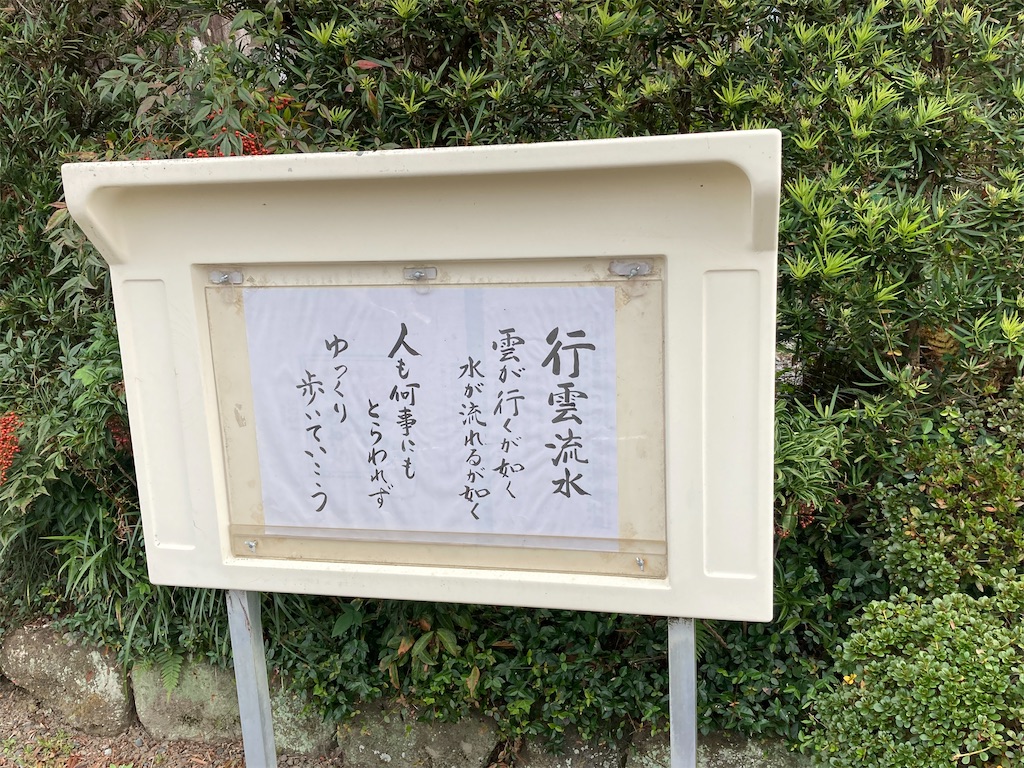 行雲流水
雲が行くが如く
水が流れるが如く
人も何事にも
とらわれず
ゆっくり
歩いていこう